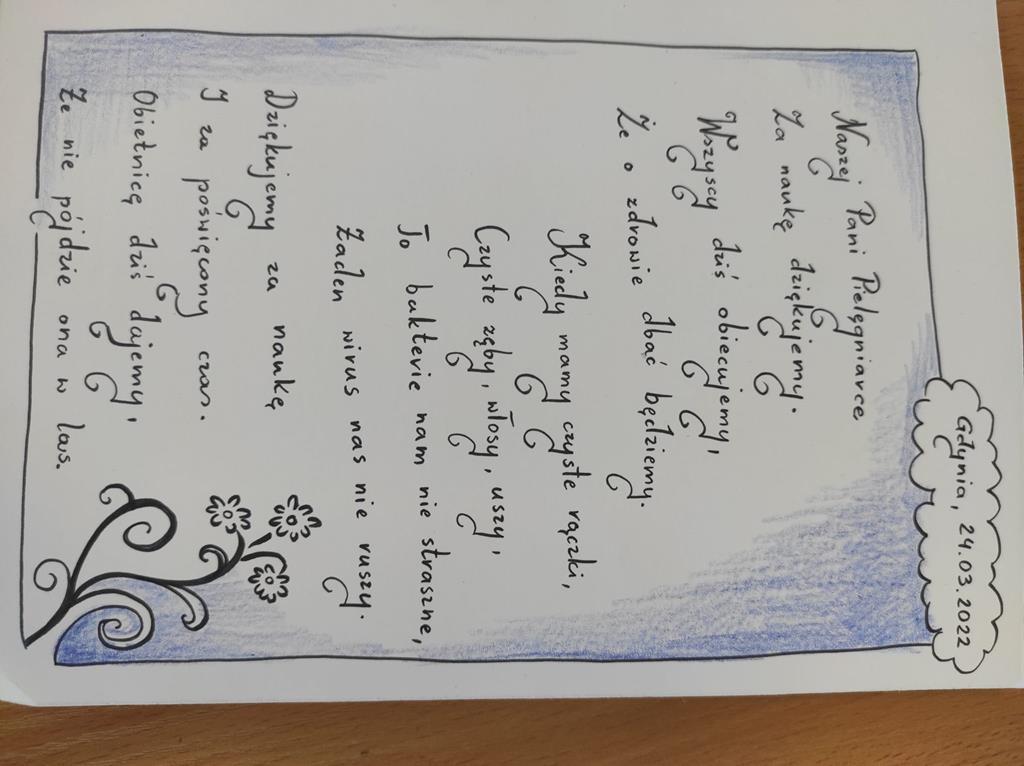 Gdynia, 24.03.2022
Naszej Pani Pielęgniarce
Za naukę dziękujemy.
Wszyscy dziś obiecujemy,
Że o zdrowie dbać będziemy.
Kiedy mamy czyste rączki,
Czyste zęby, włosy, uszy,
To bakterie nam nie straszne,
Żaden wirus nas nie ruszy.
Dziękujemy za naukę
I za poświęcony czas.
Obietnicę dziś dajemy,
Że nie pójdzie ona w las.